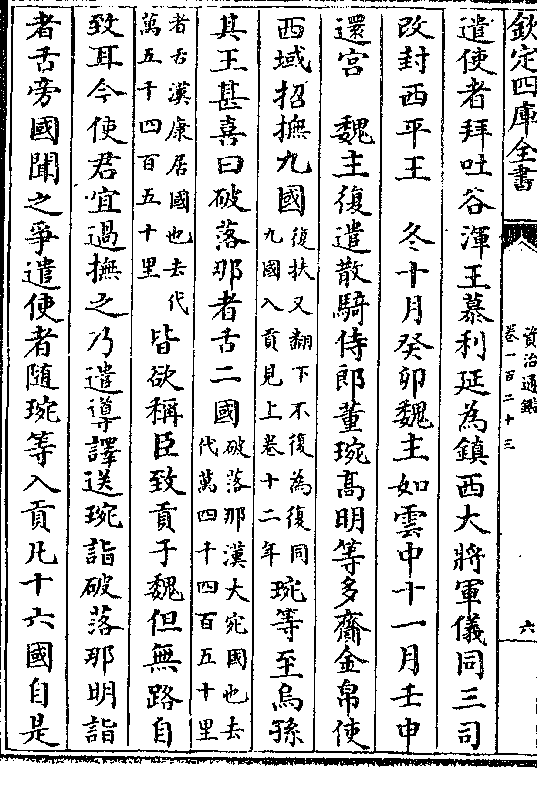 欽定四庫全書
資治通鑑
卷一百二十三
六
遣使者拜吐谷渾王慕利延為鎮西大將軍儀同三司
改封西平王　冬十月癸卯魏主如雲中十一月壬申
還宮　魏主復遣散騎侍郎董琬高明等多齎金帛使
西域招撫九國復扶又翻下不復為復同九國入貢見上卷十二年琬等至烏孫
其王甚喜曰破落那者舌二國破落那漢大宛國也去代萬四千四百五十里
者舌漢康居國也去代萬五千四百五十里皆欲稱臣致貢于魏但無路自
致耳今使君宜過撫之乃遣導譯送琬詣破落那明詣
者舌旁國聞之爭遣使者隨琬等入貢凡十六國自是